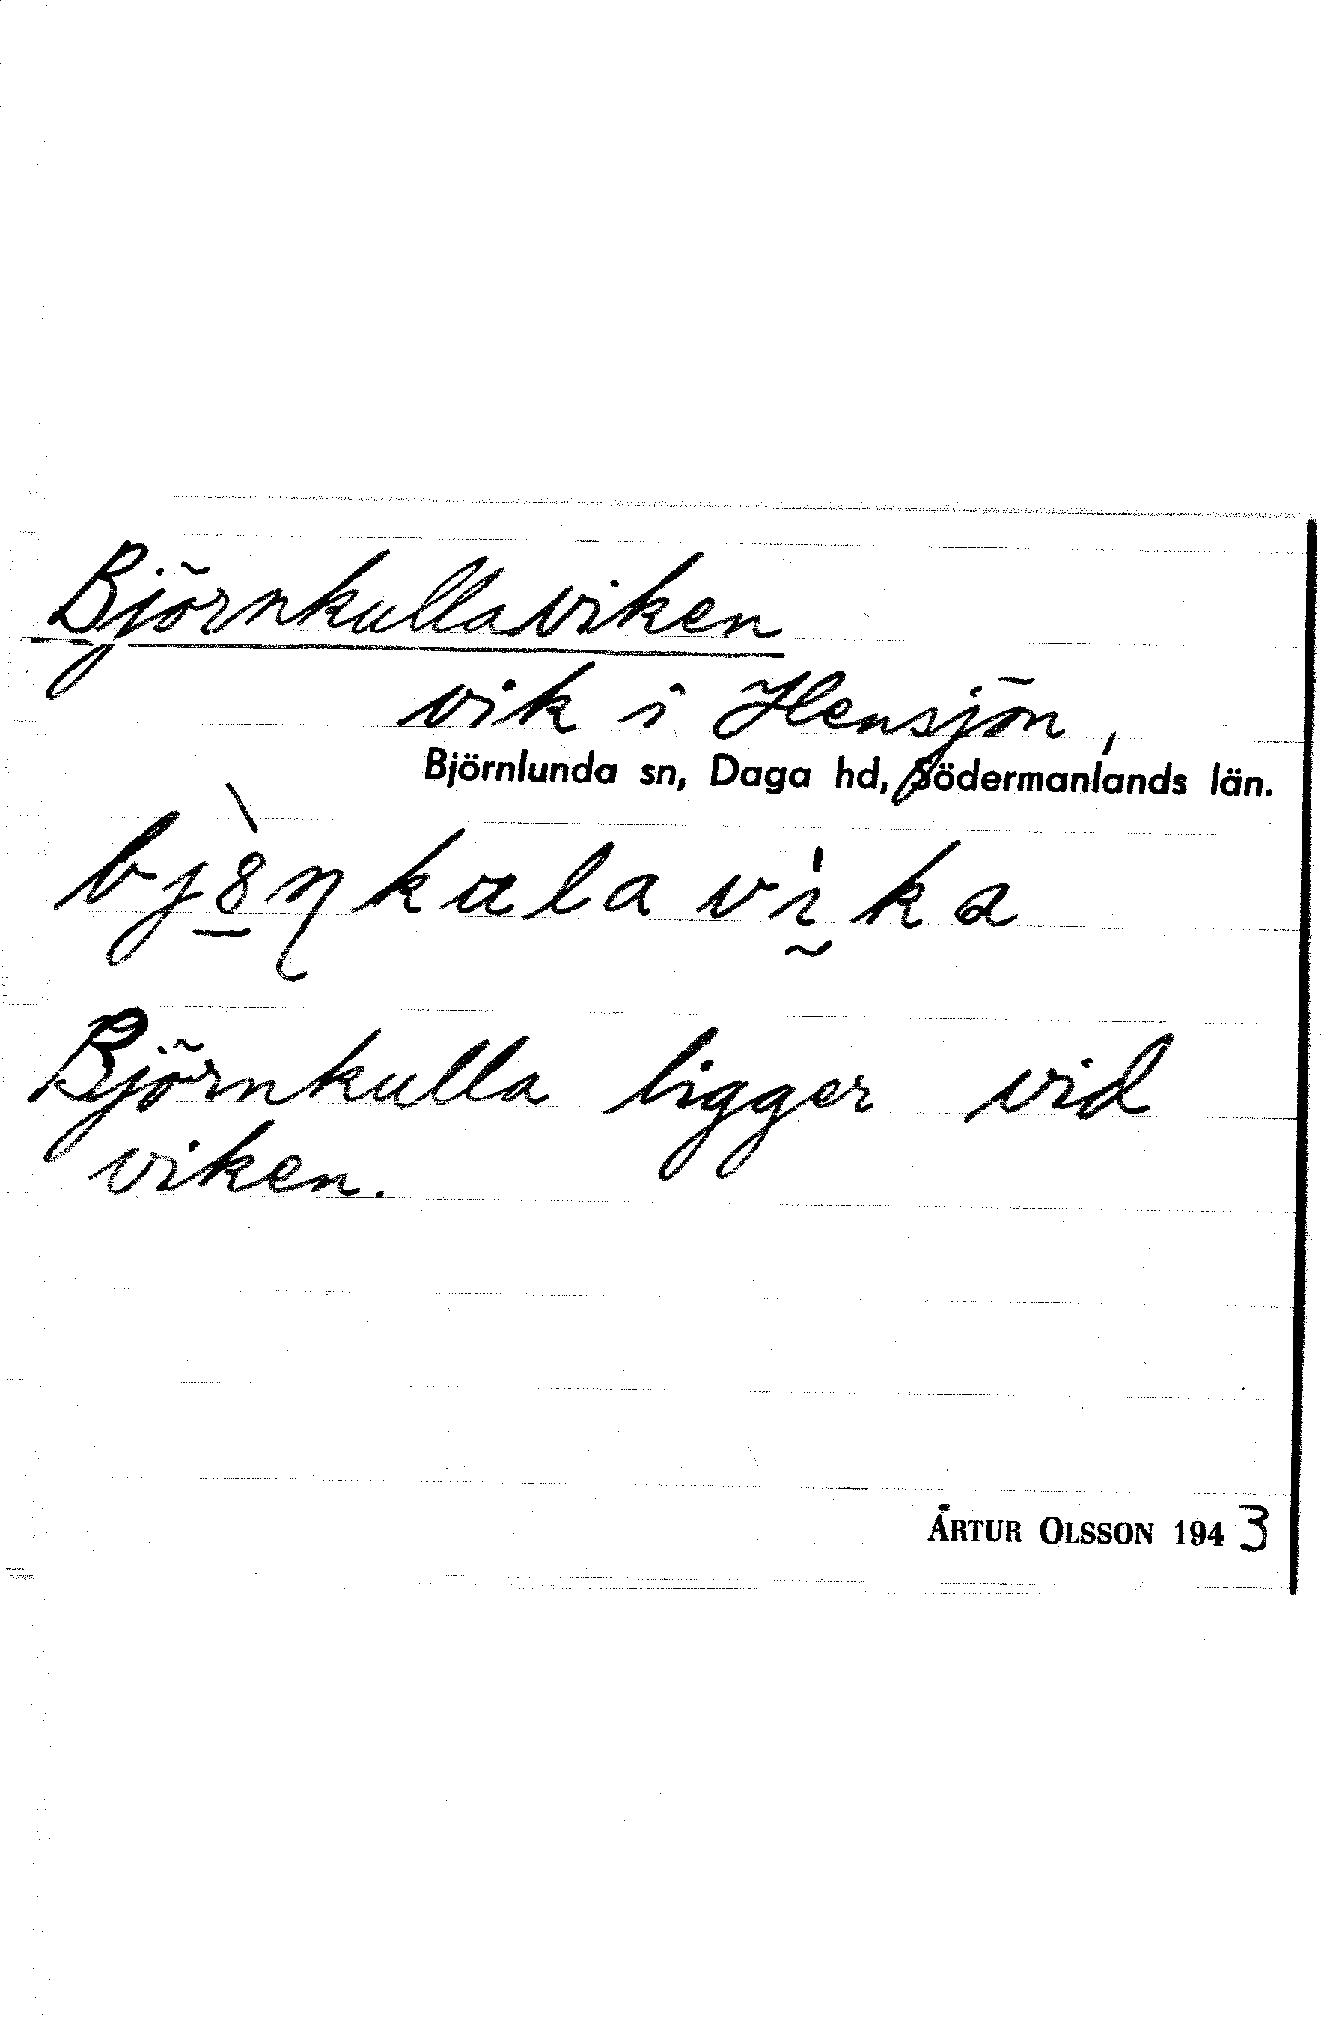 Björnkullaviken
vik i Hensjön,
Björnlunda sn, Daga hd, Södermanlands län.
bjö̱̀ɳkulavḭ̍ka
Björnkulla ligger vid
viken.
ARTUR OLSSON 1943